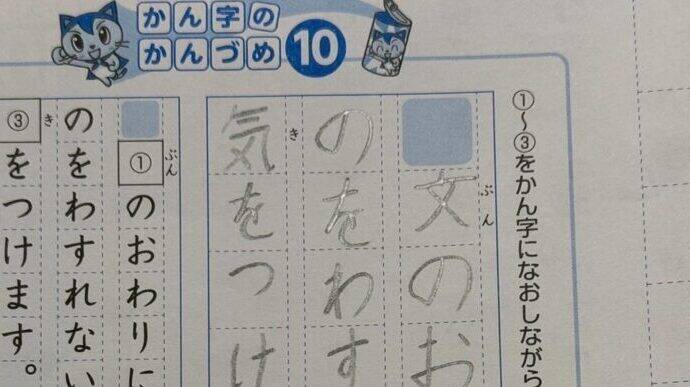 かん字の
かんづめ 10
①〜③をかん字になおしながら
ぶん
文のお
のをわす
き
気をつけ
ぶん
①のおわりに
のをわすれない
き
③をつけます。